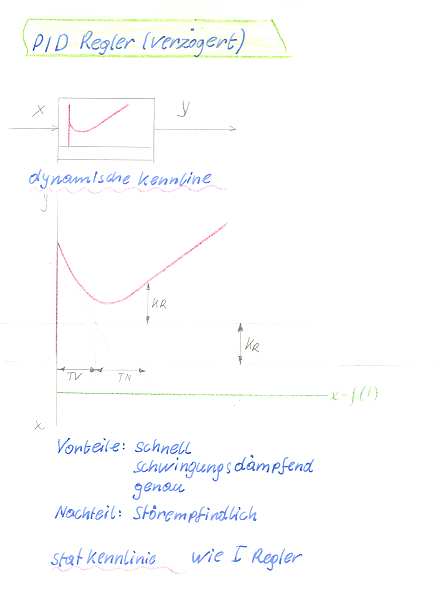 PID Regler (verzögert)
x y
dynamische Kennline
y
KR
KR
TV TN
x=f(t)
x
Vorteile: schnell
schwingungsdämpfend
genau
Nachteil: Störempfindlich
stat Kennlinie wie I Regler